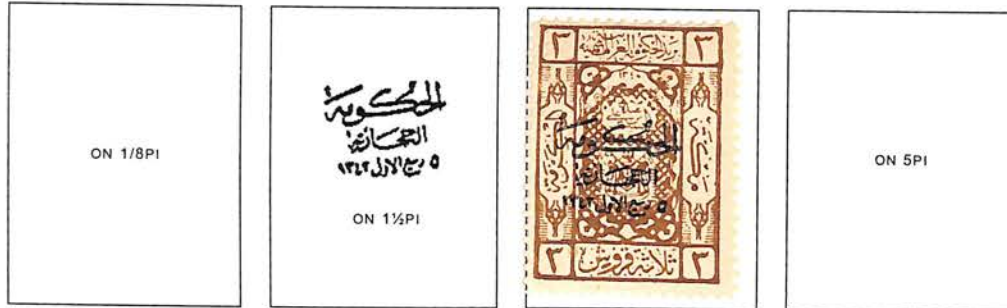 ON 1/8PI
الحكومة
الحجازية
٥ ربيع الاول ١٣٤٣
ON 1½PI
٣ ٣
الحكومة
الحجازية
٥ ربيع الاول ١٣٤٣
٣ ثلاثة قروش ٣
ON 5PI